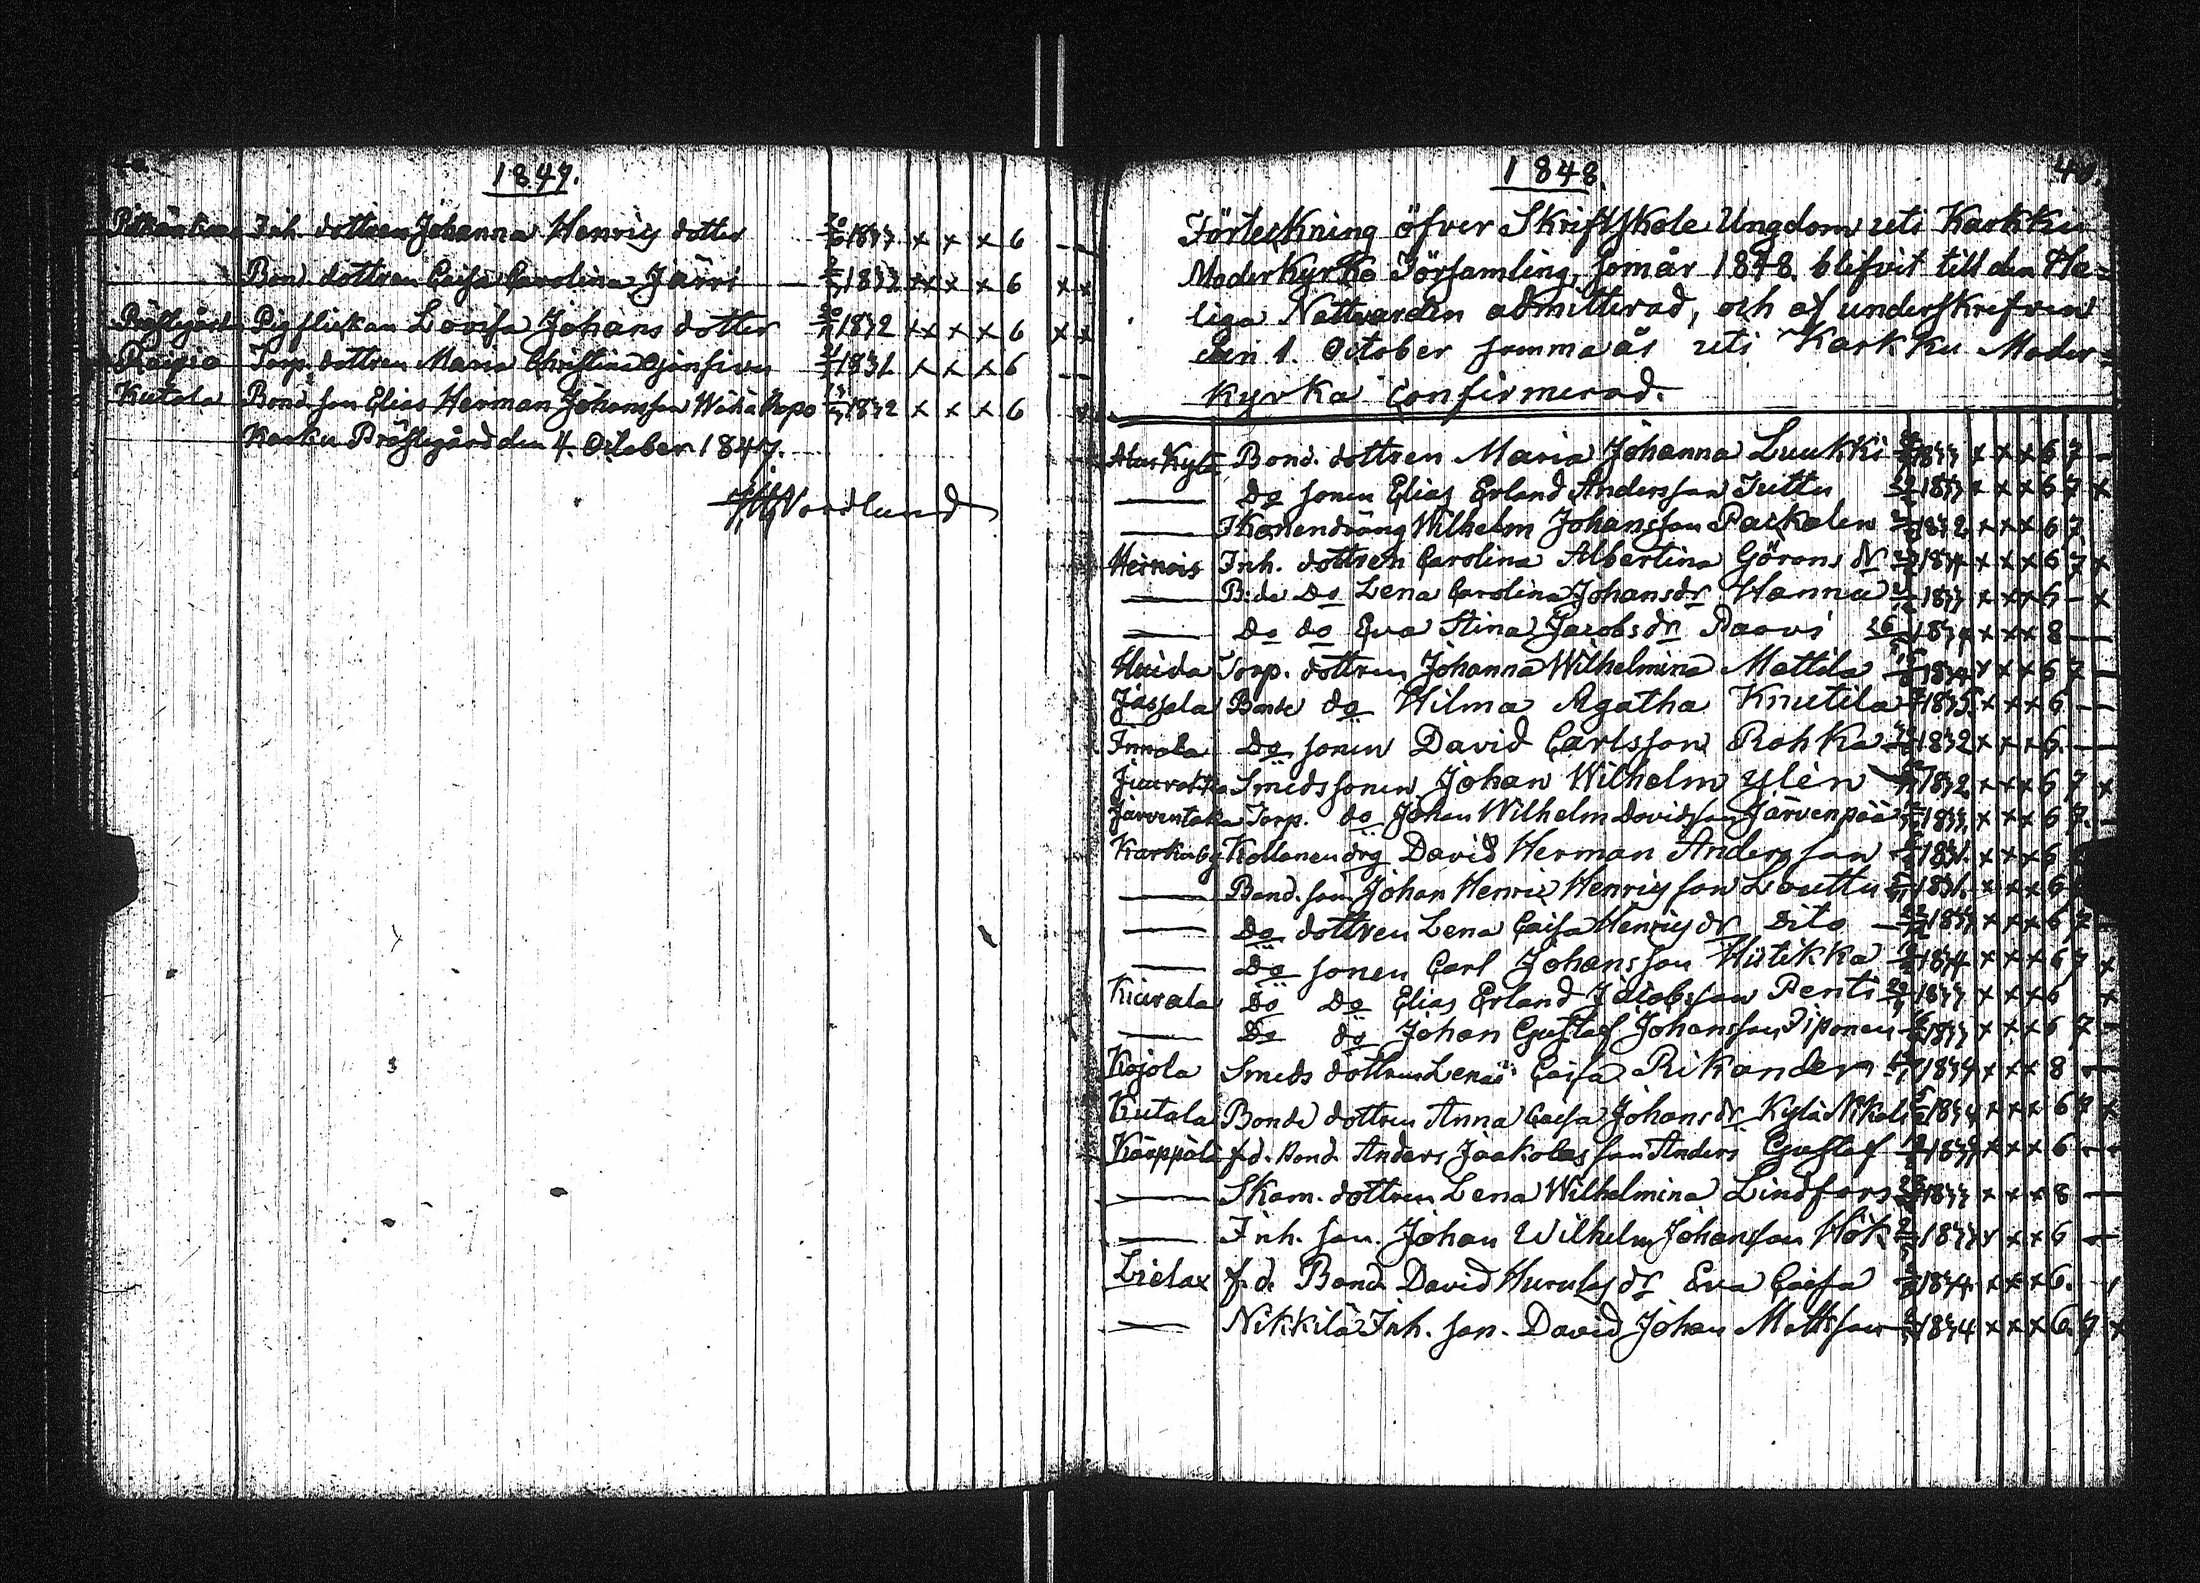 1847.
Inh. dottren Johanna Henrics dotter 1833 x x x 6 - -
Bond dottren Caisa Carolina Järvi - 1832 x x x 6 x x
Prästegård Pigflickan Lovisa Johans dotter 1832 x x x x 6 x x
Torp. dottren Maria Christina 1831 x x x 6 - -
Kutala Bond. son Elias Herman Johansson Wähä Pispo 1832 x x x 6
Karku Prästegård den 4. October 1847.
Nordlund
1848.
Förteckning öfver Skriftskole Ungdom uti Karkku
Moderkyrko Församling, som år 1848 blifvit till den He=
liga Nattvarden admitterad, och af underskrifven
den 1. October samma år uti Karkku Moder=
kyrka Confirmerad.
Aluskylä Bond. dottren Maria Johanna Luukki 1833 x x x 6 7 -
— Do sonen Elias Erland Andersson Juttu 1833 x x x 6 7 x
— Wilhelm Johansson 1832 x x x 6 7
Heinois Inh. dottren Carolina Albertina Görans dr 1834 x x x 6 7 x
— B:de Do Lena Carolina Johansdr Hannu 1833 x x x 6 - x
— Do do Eva Stina Jacobsdr Paavi 1834 x x x 8 —
Huida Torp. dottren Johanna Wilhelmina Mattila 1834 x x x 6 7 -
Jassala Bonde do Hilma Agatha Knutila 1835 x x x 6 —
Innala do sonen David Carlsson Rohka 1832 x x x 6. —
Smeds sonen Johan Wilhelm Ylén 1832 x x x 6 7 x
Järventaka Torp. do Johan Wilhelm Davidsson Järvenpää 1833 x x x 6 7. -
Karkuby drg David Herman Andersson 1831. x x x 6
— Bond. son Johan Henric Henricsson Louttu 1831. x x x 6
— Do dottren Lena Caisa Henricsdr Dito 1833 x x x 6 7 -
— Do sonen Carl Johansson Hütikka 1834 x x x 6 7 x
Kiurala Do Do Elias Erland Jacobsson Penti 1833 x x x 6 x
— Do do Johan Gustaf Johansson Piponen 1833 x x x 6 7 -
Kojola Smeds dottren Lena Caisa Rikander 1834 x x x 8 —
Kutala Bonde dottren Anna Caisa Johansdr Kylä Nikula 1834 x x x 6 7 x
Käppälä f.d. Bond. Anders Jaakolas son Anders Gustaf x x x 6 —
— Skom. dottren Lena Wilhelmina Lindfors 1833 x x x 8 —
— Inh. son. Johan Wilhelm Johansson Hök 1833 x x x 6 —
Lielax f.d. Bond. David dr Eva Caisa 1834 x x x 6.
— Nikkilä Inh. son. David Johan Mattsson 1834 x x x 6. 7 x